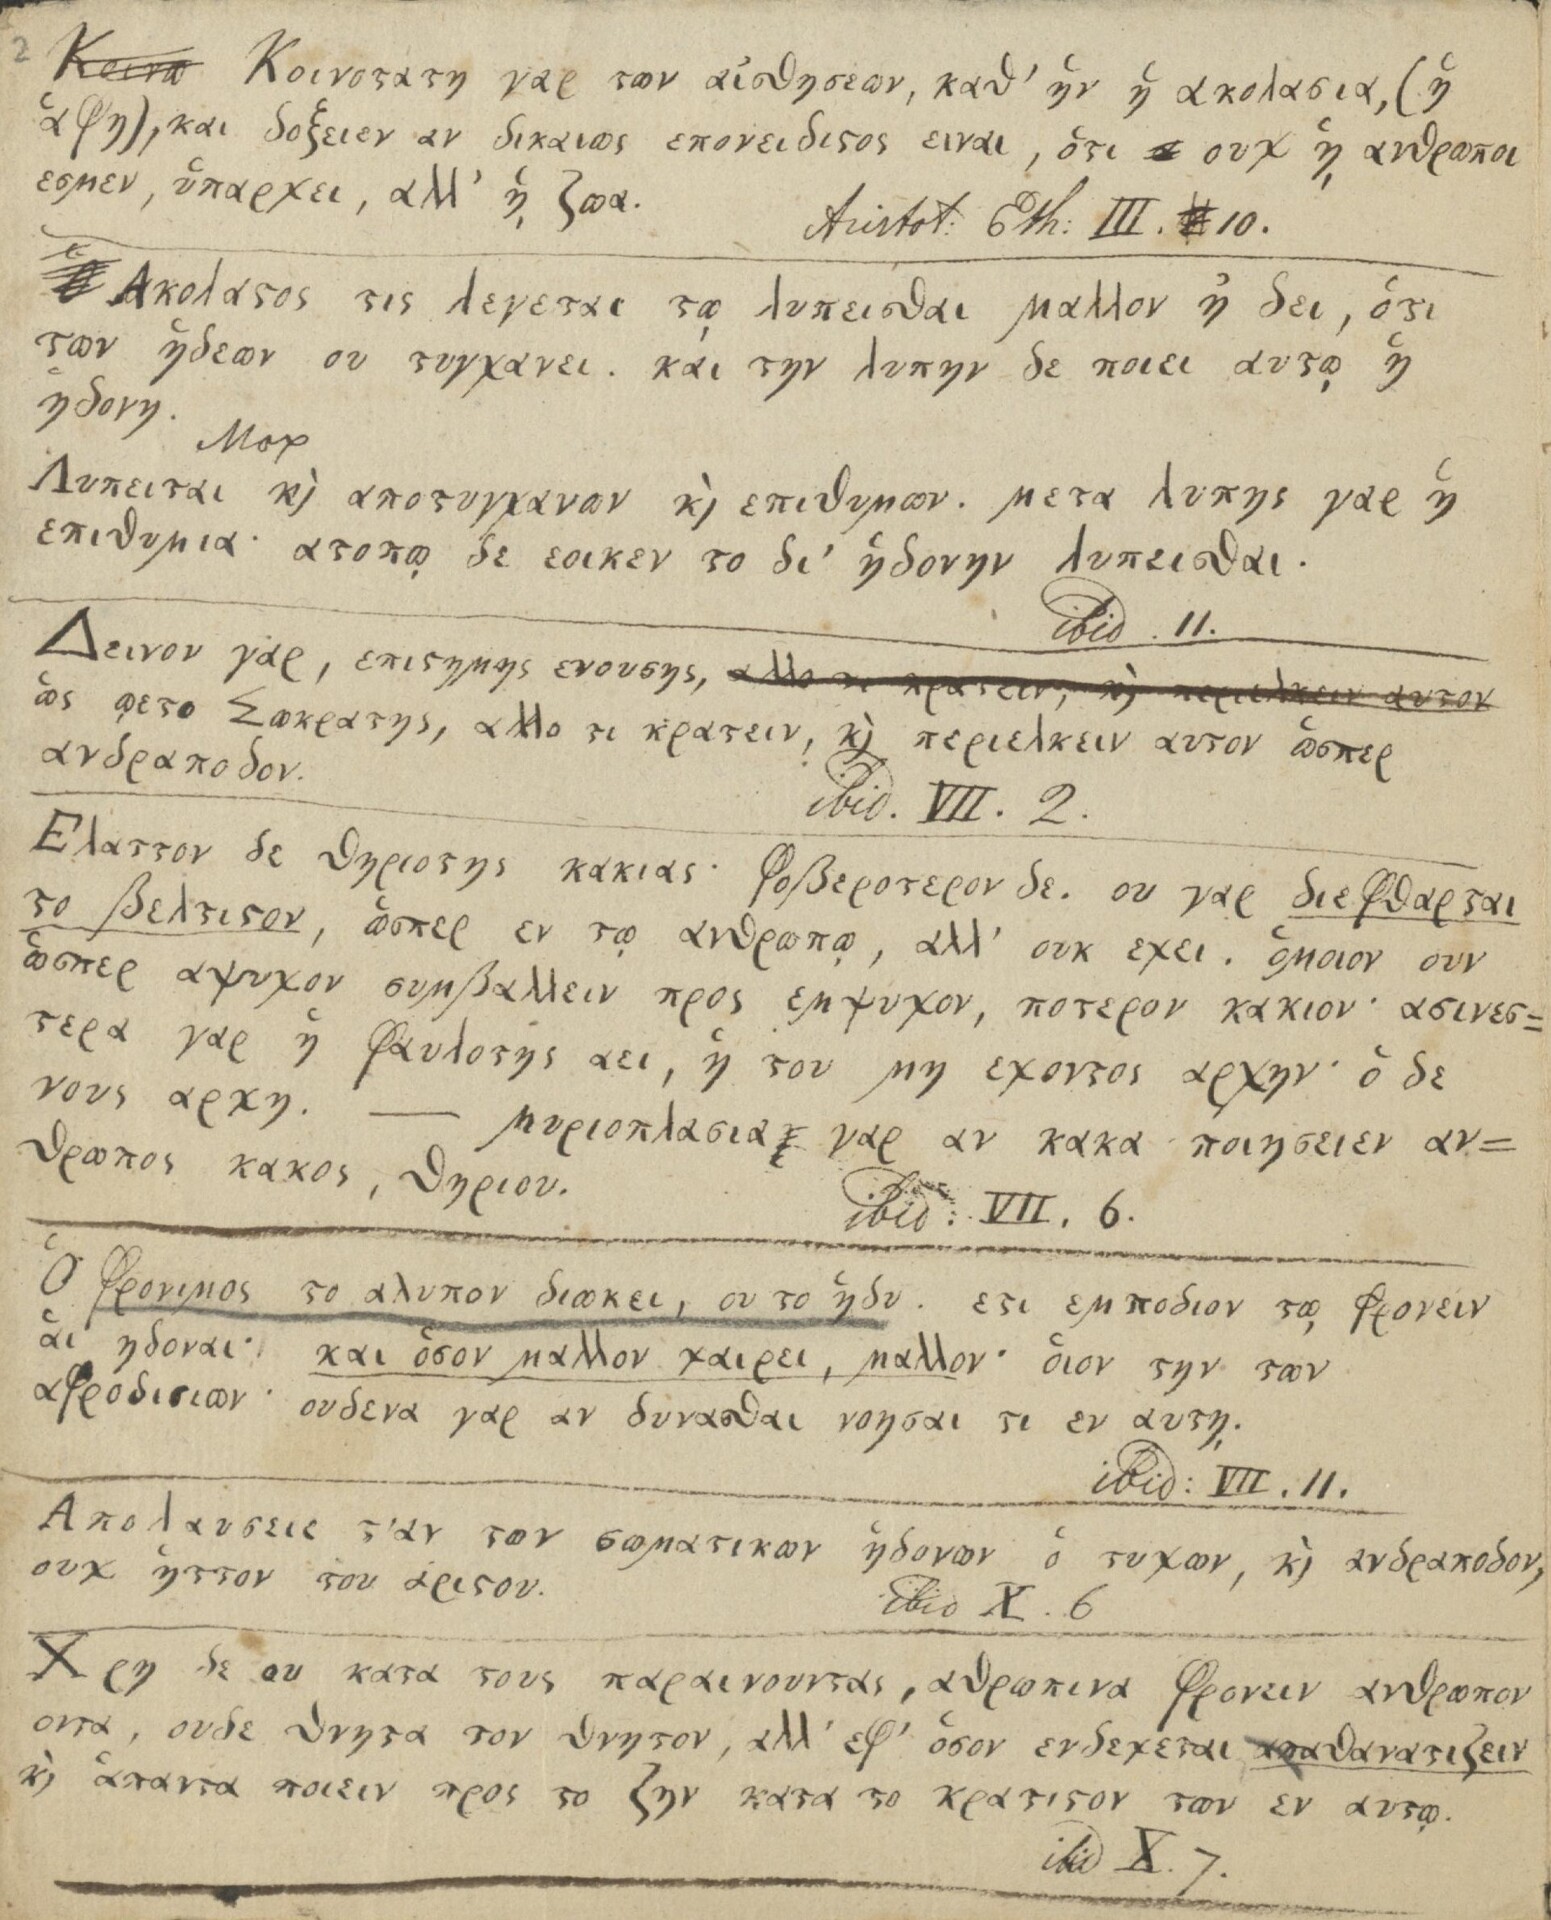 2 Κοινο Κοινοτατη γαρ των αἰσθησεων, καθ' ἡν ἡ ακολασια, (ἡ
ἁφη), και δοξειεν αν δικαιως επονειδιϛος ειναι, ὁτι ουχ ᾑ ανθρωποι
εσμεν, ὑπαρχει, αλλ' ᾑ ζωα.
Aristot: Eth: III. 10.
Ακολαϛος τις λεγεται τῳ λυπεισθαι μαλλον ἠ δει, ὁτι
των ἡδεων ου τυγχανει. και την λυπην δε ποιει αυτῳ ἡ
ἡδονη.
Μοχ
Λυπειται κ̀ αποτυγχανων κ̀ επιθυμων. μετα λυπης γαρ ἡ
επιθυμια· ατοπῳ δε εοικεν το δι' ἡδονην λυπεισθαι.
ibid. 11.
Δεινον γαρ, επιϛημης ενουσης, αλλο τι κρατειν, κ̀ περιελκειν αυτον
ὡς ῳετο Σωκρατης, αλλο τι κρατειν, κ̀ περιελκειν αυτον ὡσπερ
ανδραποδον.
ibid. VII. 2.
Ελαττον δε θηριοτης κακιας· φοβεροτερον δε. ου γαρ διεφθαρται
το βελτιϛον, ὡσπερ εν τῳ ανθρωπῳ, αλλ' ουκ εχει. ὁμοιον ουν
ὡσπερ αψυχον συμβαλλειν προς εμψυχον, ποτερον κακιον· ασινεσ=
τερα γαρ ἡ φαυλοτης αει, ἡ του μη εχοντος αρχην· ὁ δε
νους αρχη. — μυριοπλασια γαρ αν κακα ποιησειεν αν=
θρωπος κακος, θηριου.
ibid: VII. 6.
Ὁ φρονιμος το αλυπον διωκει, ου το ἡδυ. ετι εμποδιον τῳ φρονειν
ἁι ηδοναι· και ὁσον μαλλον χαιρει, μαλλον· ὁιον την των
αφροδισιων· ουδενα γαρ αν δυνασθαι νοησαι τι εν αυτῃ.
ibid: VII. 11.
Απολαυσειε τ'αν των σωματικων ἡδονων ὁ τυχων, κ̀ ανδραποδον,
ουχ ἡττον του αριϛου.
ibid X. 6
Χρη δε ου κατα τους παραινουντας, αθρωπινα φρονειν ανθρωπον
οντα, ουδε θνητα τον θνητον, αλλ' εφ' ὁσον ενδεχεται απαθανατιζειν
κ̀ ἁπαντα ποιειν προς το ζην κατα το κρατιϛον των εν αυτῳ.
ibid X. 7.